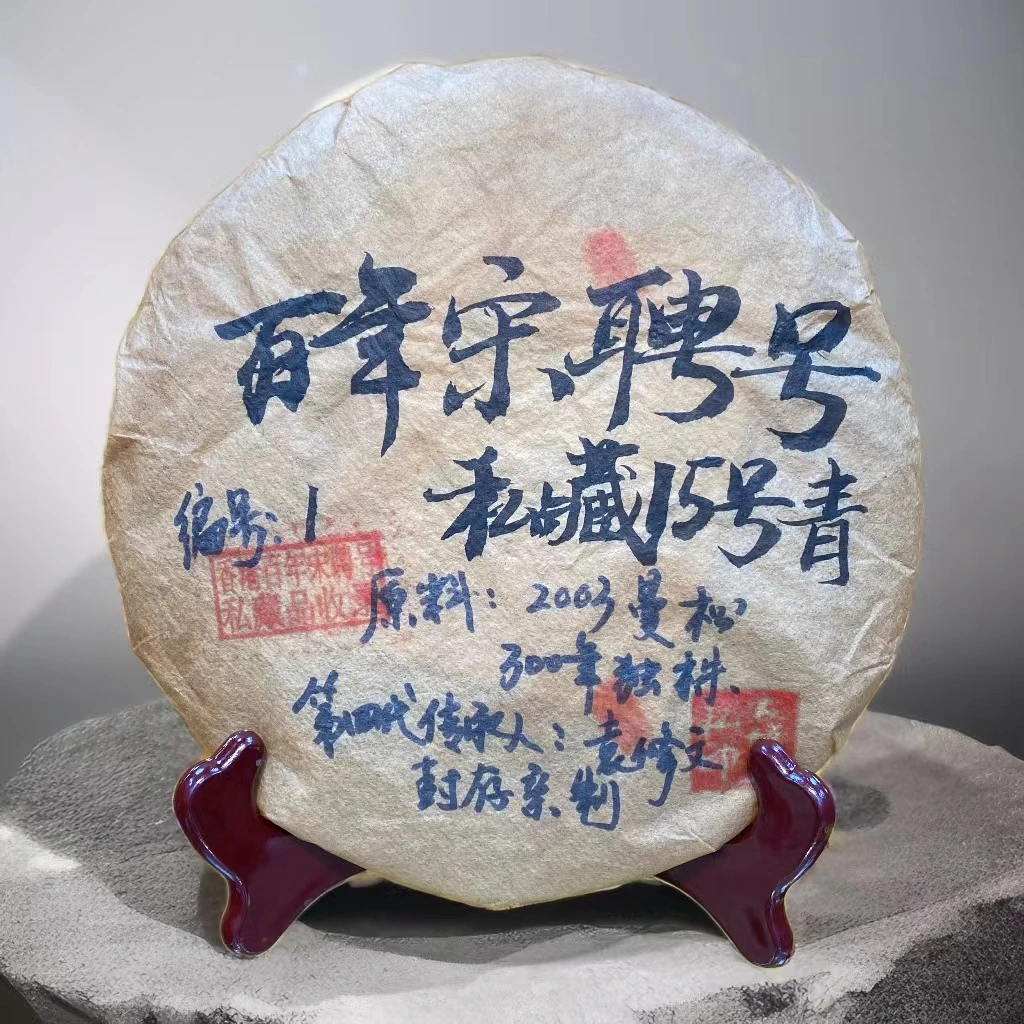 百年宋聘号
私藏15号青
编号:1
香港百年宋聘号
私藏品收
原料:2003曼松
300年独株.
第四代传承人:袁修文
封存亲制